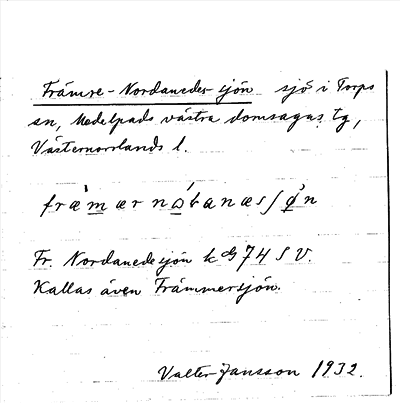 Främre-Nordanedesjön sjö i Torps
sn, Medelpads västra domsagas tg,
Västernorrlands l.
fræmær
Fr. Nordanedesjön k bl 74 S V.
Kallas även Främmersjön.
Valter Jansson 1932.